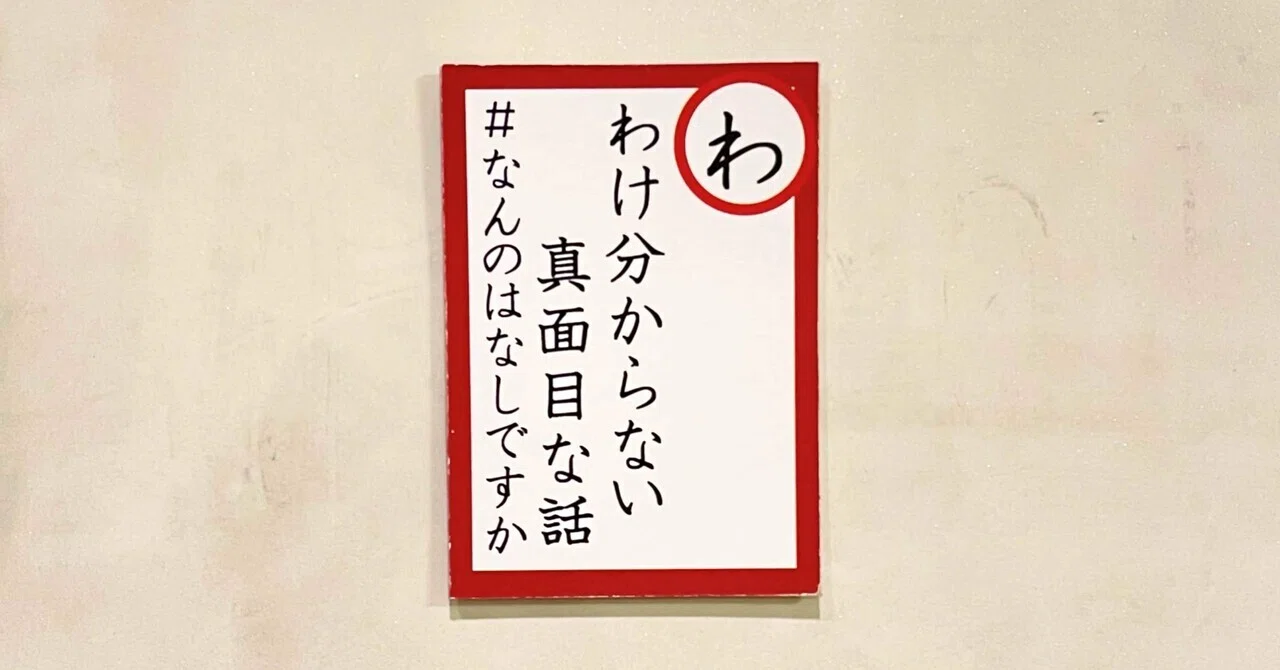 わ
わけ分からない
真面目な話
#なんのはなしですか